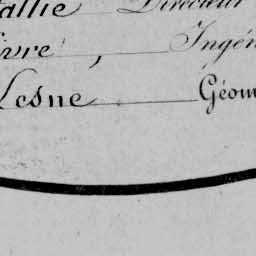 allie Directeur
ivre, Ingén
Lesne Géom